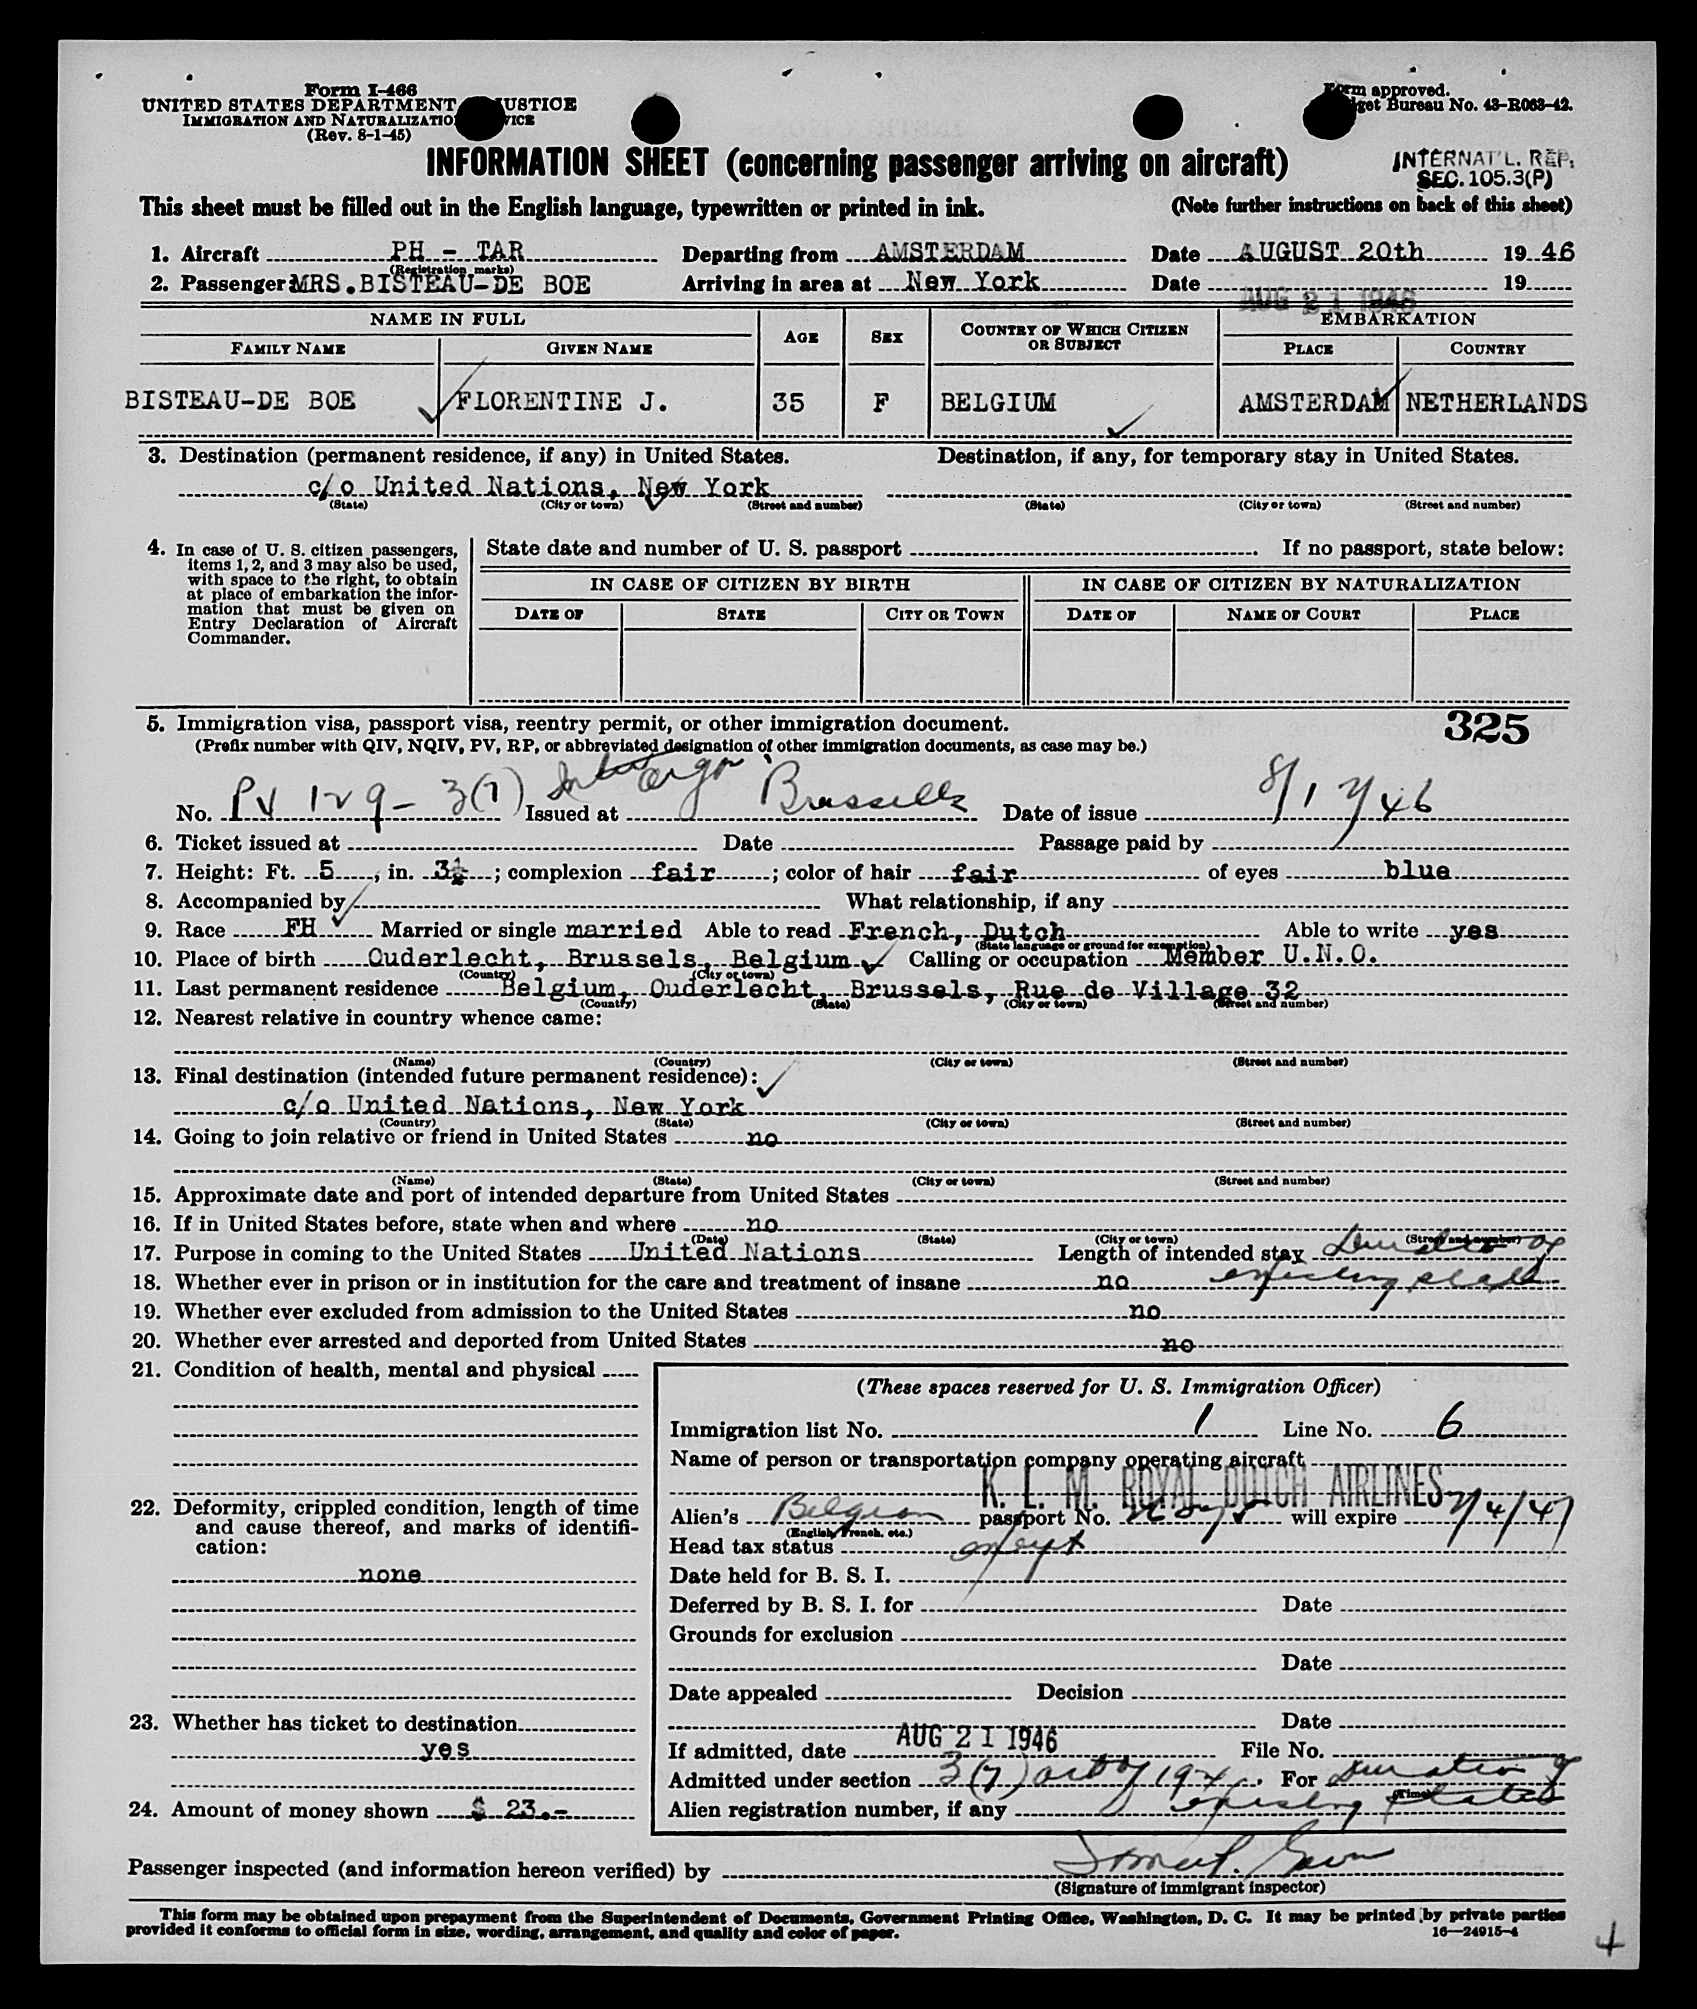 Form I-466
UNITED STATES DEPARTMENT JUSTICE
IMMIGRATION AND NATURALIZATION
(Rev. 8-1-45)
Form approved.
Budget Bureau No. 43-R063-42.
INTERNAT'L. REP.
SEC. 105.3(P)
INFORMATION SHEET (concerning passenger arriving on aircraft)
This sheet must be filled out in the English language, typewritten or printed in ink. (Note further instructions on back of this sheet)
1. Aircraft PH - TAR Departing from AMSTERDAM Date AUGUST 20th 19 46
(Registration marks)
2. Passenger MRS. BISTEAU-DE BOE Arriving in area at New York Date AUG 21 1946 19
NAME IN FULL AGE SEX COUNTRY OF WHICH CITIZEN OR SUBJECT EMBARKATION
FAMILY NAME GIVEN NAME PLACE COUNTRY
BISTEAU-DE BOE FLORENTINE J. 35 F BELGIUM AMSTERDAM NETHERLANDS
3. Destination (permanent residence, if any) in United States. Destination, if any, for temporary stay in United States.
c/o United Nations, New York
(State) (City or town) (Street and number) (State) (City or town) (Street and number)
4. In case of U. S. citizen passengers, items 1, 2, and 3 may also be used, with space to the right, to obtain at place of embarkation the information that must be given on Entry Declaration of Aircraft Commander.
State date and number of U. S. passport . If no passport, state below:
IN CASE OF CITIZEN BY BIRTH IN CASE OF CITIZEN BY NATURALIZATION
DATE OF STATE CITY OR TOWN DATE OF NAME OF COURT PLACE
5. Immigration visa, passport visa, reentry permit, or other immigration document. 325
(Prefix number with QIV, NQIV, PV, RP, or abbreviated designation of other immigration documents, as case may be.)
No. PV 129 - 3(7) Issued at Brussells Date of issue 8/17/46
6. Ticket issued at Date Passage paid by
7. Height: Ft. 5, in. 3½; complexion fair; color of hair fair of eyes blue
8. Accompanied by What relationship, if any
9. Race FH Married or single married Able to read French, Dutch Able to write yes
(State language or ground for exemption)
10. Place of birth Ouderlecht, Brussels, Belgium Calling or occupation Member U.N.O.
(Country) (City or town)
11. Last permanent residence Belgium, Ouderlecht, Brussels, Rue de Village 32
(Country) (State) (City or town) (Street and number)
12. Nearest relative in country whence came:
(Name) (Country) (City or town) (Street and number)
13. Final destination (intended future permanent residence):
c/o United Nations, New York
(Country) (State) (City or town) (Street and number)
14. Going to join relative or friend in United States no
(Name) (State) (City or town) (Street and number)
15. Approximate date and port of intended departure from United States
16. If in United States before, state when and where no
(Date) (State) (City or town) (Street and number)
17. Purpose in coming to the United States United Nations Length of intended stay Duration of
18. Whether ever in prison or in institution for the care and treatment of insane no
19. Whether ever excluded from admission to the United States no
20. Whether ever arrested and deported from United States no
21. Condition of health, mental and physical
22. Deformity, crippled condition, length of time and cause thereof, and marks of identification:
none
23. Whether has ticket to destination
yes
24. Amount of money shown $ 23.-
(These spaces reserved for U. S. Immigration Officer)
Immigration list No. 1 Line No. 6
Name of person or transportation company operating aircraft
K. L. M. ROYAL DUTCH AIRLINES
Alien's Belgian passport No. will expire 7/4/47
(English, French, etc.)
Head tax status exempt
Date held for B. S. I.
Deferred by B. S. I. for Date
Grounds for exclusion
Date
Date appealed Decision
Date
If admitted, date AUG 21 1946 File No.
Admitted under section 3(7) act of 1924. For Duration of
(Time)
Alien registration number, if any status
Passenger inspected (and information hereon verified) by
(Signature of immigrant inspector)
This form may be obtained upon prepayment from the Superintendent of Documents, Government Printing Office, Washington, D. C. It may be printed by private parties
provided it conforms to official form in size, wording, arrangement, and quality and color of paper. 16—24915-4
4